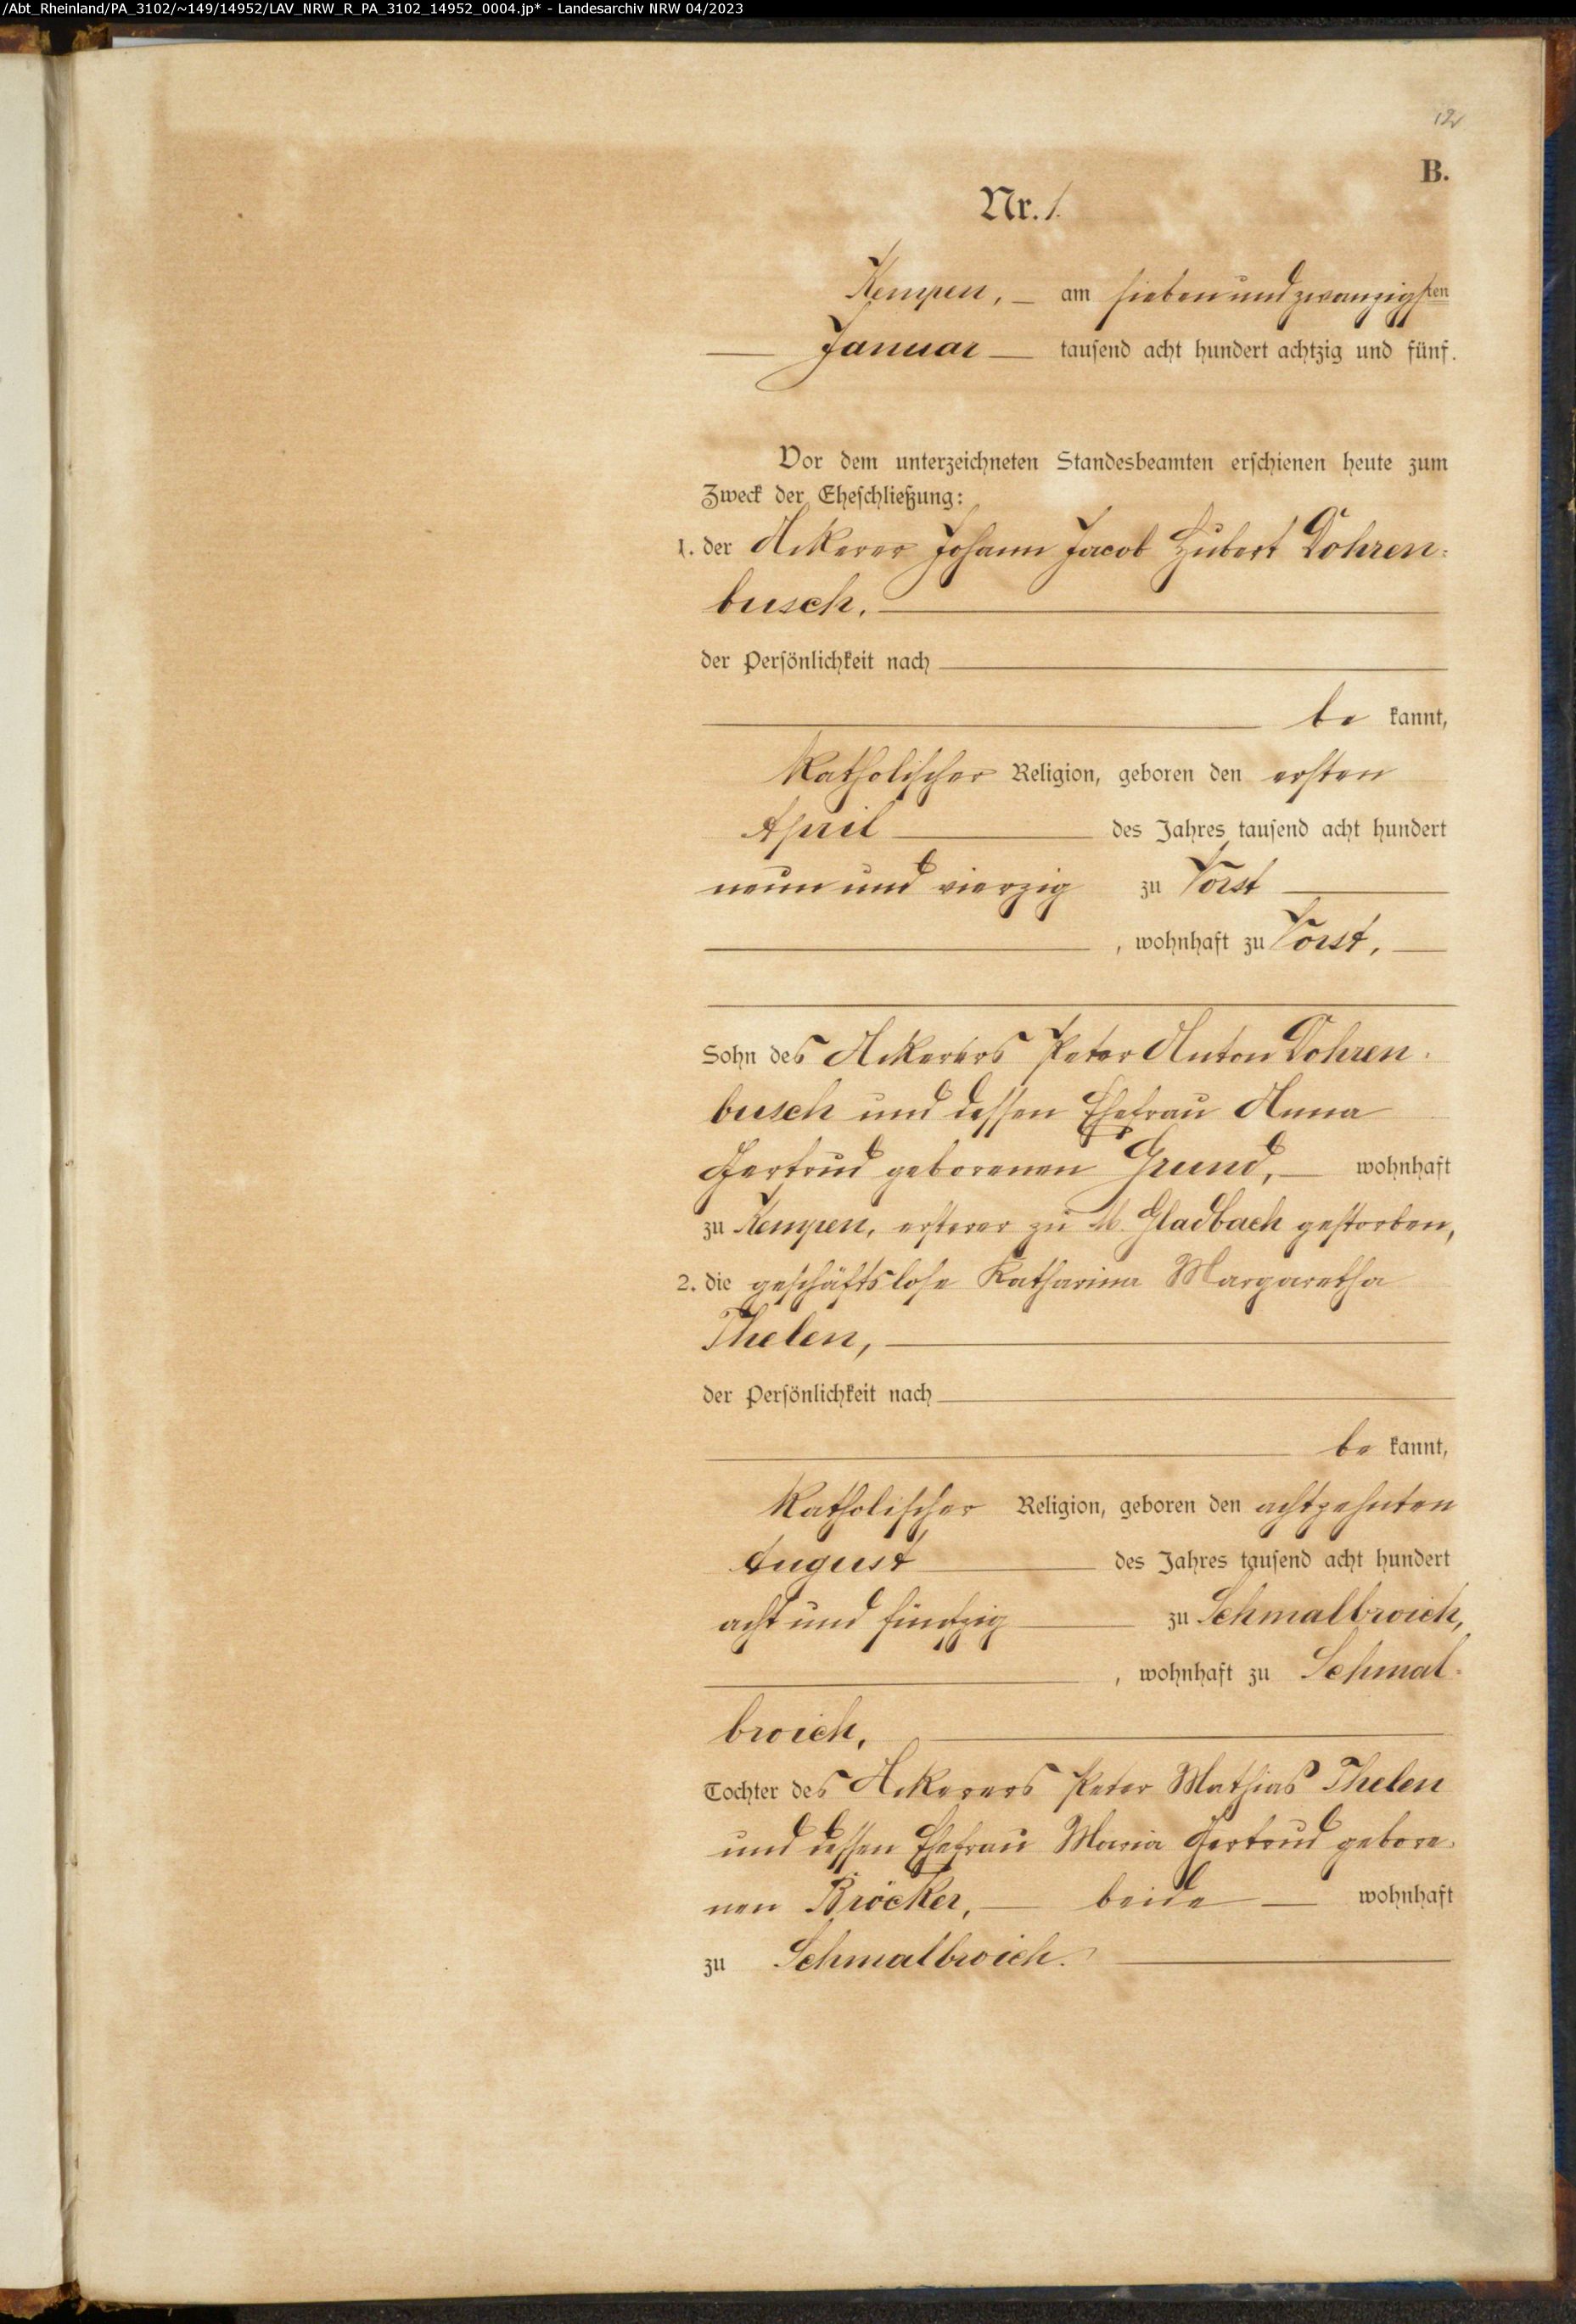 /Abt_Rheinland/PA_3102/~149/14952/LAV_NRW_R_PA_3102_14952_0004.jp* - Landesarchiv NRW 04/2023
B.
Nr. 1.
Kempen, — am siebenundzwanzigsten
— Januar — tausend acht hundert achtzig und fünf.
Vor dem unterzeichneten Standesbeamten erschienen heute zum
Zweck der Eheschließung:
1. der Ackerer Johann Jacob Hubert Dohren-
busch,
der Persönlichkeit nach
be kannt,
katholischer Religion, geboren den ersten
April des Jahres tausend acht hundert
neun und vierzig zu Vorst
, wohnhaft zu Vorst,
Sohn des Ackerers Peter Anton Dohren-
busch und dessen Ehefrau Anna
Gertrud geborenen Grund, — wohnhaft
zu Kempen, ersterer zu M. Gladbach gestorben,
2. die geschäftslose Katharina Margaretha
Thelen,
der Persönlichkeit nach
be kannt,
katholischer Religion, geboren den achtzehnten
August des Jahres tausend acht hundert
acht und fünfzig zu Schmalbroich,
, wohnhaft zu Schmal-
broich,
Tochter des Ackerers Peter Mathias Thelen
und dessen Ehefrau Maria Gertrud gebore-
nen Bröcker, — beide — wohnhaft
zu Schmalbroich.